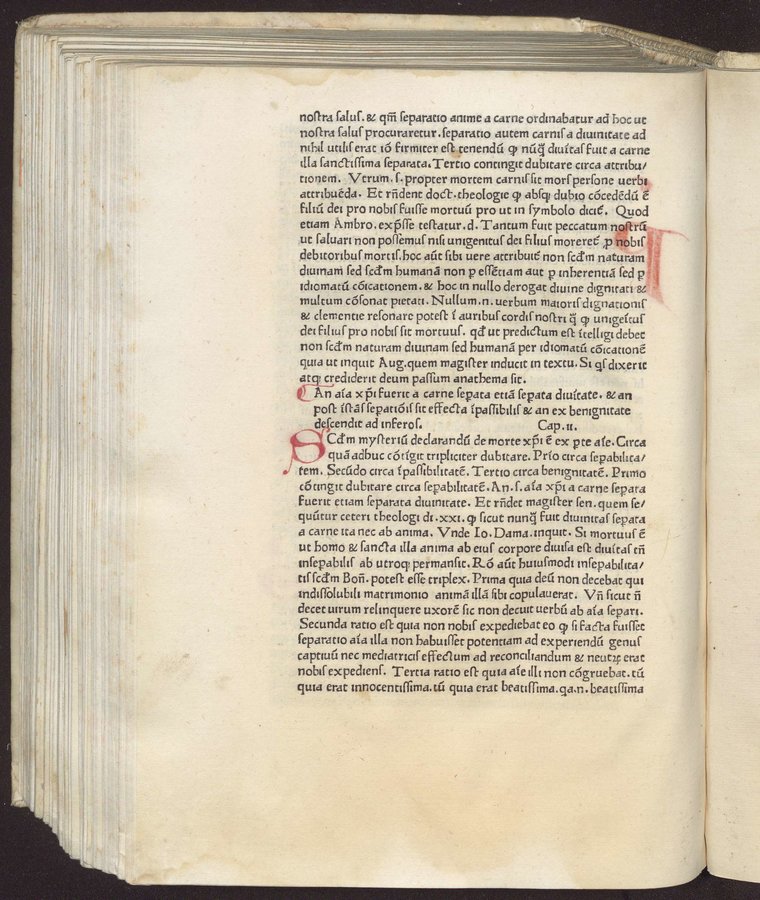 nostra salus. & qm̃ separatio anime a carne ordinabatur ad hoc ut
nostra salus procuraretur. separatio autem carnis a diuinitate ad
nihil utilis erat iõ firmiter est tenendũ ꝙ nũq̃ diuĩtas fuit a carne
illa sanctissima separata. Tertio contingit dubitare circa attribu/
tionem. Vtrum .s. propter mortem carnis sit mors persone uerbi
attribuẽda. Et rñdent doct. theologie ꝙ absq; dubio cõcedẽdũ ẽ
filiũ dei pro nobis fuisse mortuũ pro ut in symbolo dicit̃. Quod
etiam Ambro. exp̃sse testatur .d. Tantum fuit peccatum nostrũ
ut saluari non possemus nisi unigenitus dei filius moreret̃ ꝓ nobis
debitoribus mortis. hoc aũt sibi uere attribuit̃ non scd̃m naturam
diuinam sed scd̃m humanã non ꝑ essẽtiam aut ꝑ inherentiã sed ꝑ
idiomatũ cõicationem. & hoc in nullo derogat diuine dignitati &
multum cõsonat pietati. Nullum .n. uerbum maioris dignationis
& clementie resonare potest ĩ auribus cordis nostri q̃ ꝙ unigeĩtus
dei filius pro nobis sit mortuus. qd̃ ut predictum est ĩtelligi debet
non scd̃m naturam diuinam sed humanã per idiomatũ cõicationẽ
quia ut inquit Aug. quem magister inducit in textu. Si q̃s dixerit
atq; crediderit deum passum anathema sit.
An aĩa xp̃i fuerit a carne sepata etiã sepata diuĩtate. & an
post istãs sepatiõis sit effecta ĩpassibilis & an ex benignitate
descendit ad inferos. Cap. ii.
SCd̃m mysteriũ declarandũ de morte xp̃i ẽ ex pte aĩe. Circa
quã adhuc cõtĩgit tripliciter dubitare. Prĩo circa sepabilita/
tem. Secũdo circa ĩpassibilitatẽ. Tertio circa benignitatẽ. Primo
cõtingit dubitare circa sepabilitatẽ. An .s. aĩa xp̃i a carne sepata
fuerit etiam separata diuinitate. Et rñdet magister sen. quem se/
quũtur ceteri theologi di. xxi. ꝙ sicut nunq̃ fuit diuinitas sepata
a carne ita nec ab anima. Vnde Io. Dama. inquit. Si mortuus ẽ
ut homo & sancta illa anima ab eius corpore diuisa est diuĩtas tñ
insepabilis ab utroq; permansit. Rõ aũt huiusmodi insepabilita/
tis scd̃m Boñ. potest esse triplex. Prima quia deũ non decebat qui
indissolubili matrimonio animã illã sibi copulauerat. Vñ sicut ñ
decet uirum relinquere uxorẽ sic non decuit uerbũ ab aĩa separi.
Secunda ratio est quia non nobis expediebat eo ꝙ si facta fuisset
separatio aĩa illa non habuisset potentiam ad experiendũ genus
captiuũ nec mediatricis effectum ad reconciliandum & neutrꝝ erat
nobis expediens. Tertia ratio est quia aĩe illi non cõgruebat. tũ
quia erat innocentissima. tũ quia erat beatissima. qa .n. beatissima